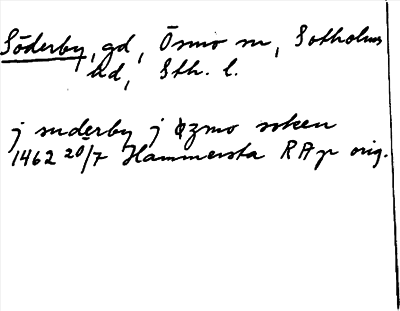 Söderby, gd, Ösmo sn, Sotholms
hd, Sth. l.
j suderby j øzmo soken
1462 20/7 Hammersta RAp orig.